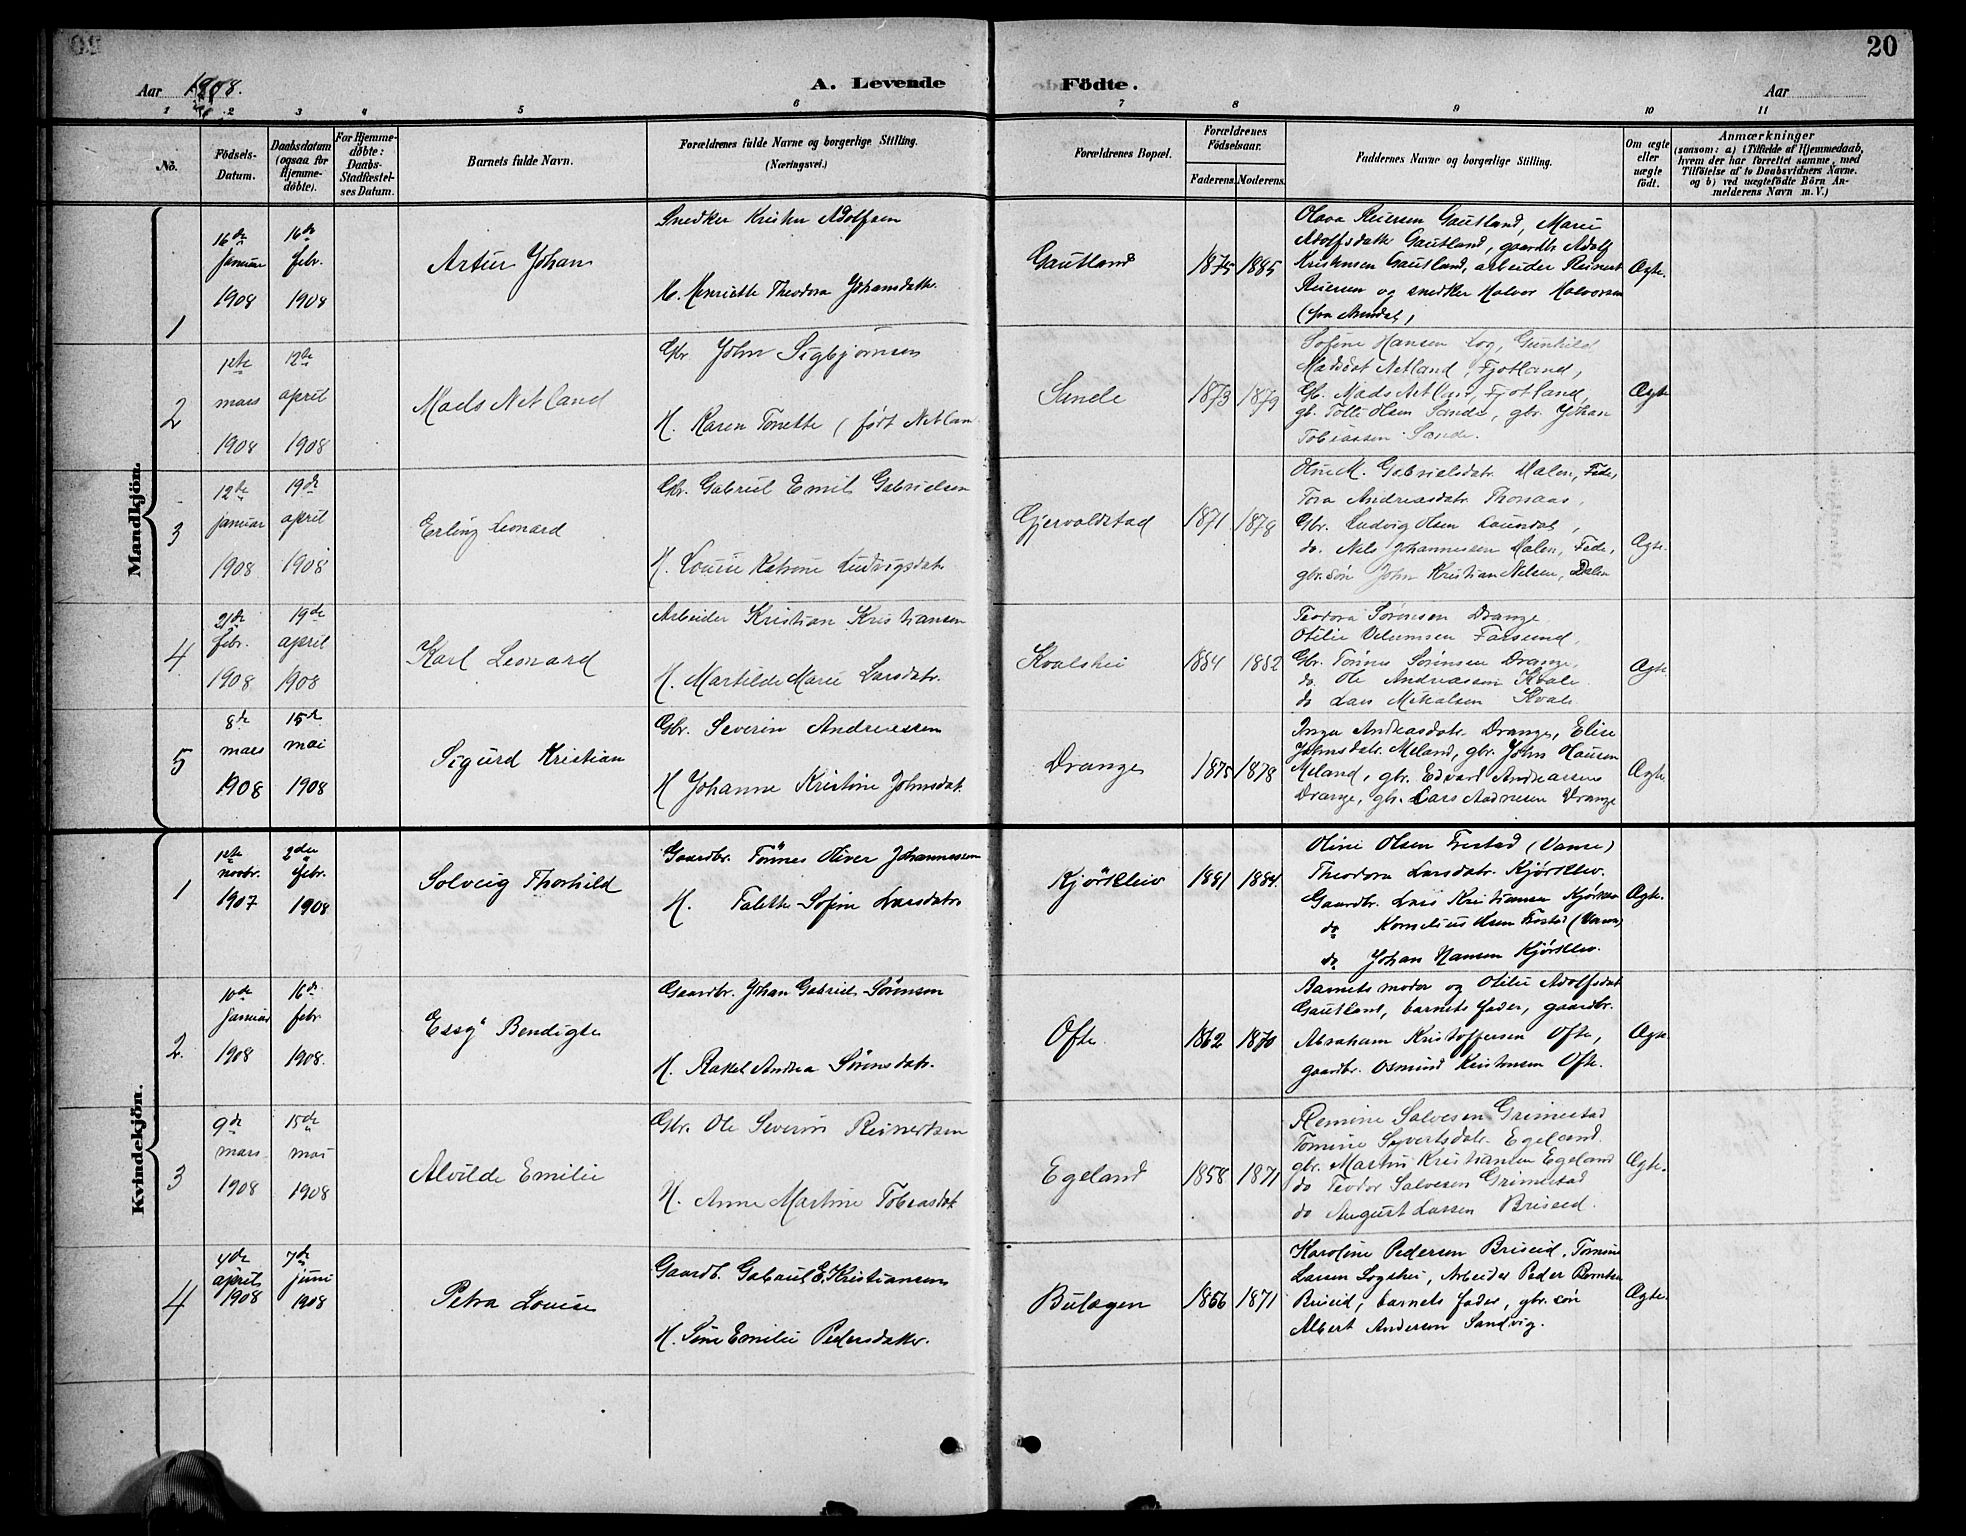 20
Aar 1908.
A. Levende Fødte.
Aar
1 2 3 4 5 6 7 8 9 10 11
No.
Födsels-Datum.
Daabsdatum (ogsaa for Hjemmedöbte).
For Hjemmedöbte: Daabs-Stadfæstelses Datum.
Barnets fulde Navn.
Forældrenes fulde Navne og borgerlige Stilling. (Næringsvei.)
Forældrenes Bopæl.
Forældrenes Födselsaar.
Faderens. Moderens.
Faddernes Navne og borgerlige Stilling.
Om ægte eller uægte födt.
Anmærkninger
(saasom: a) i Tilfælde af Hjemmedaab, hvem der har forrettet samme, med Tilföielse af to Daabsvidners Navne. og b) ved uægtefödte Börn Anmelderens Navn m. V.)
Mandkjön.
1
16de januar 1908
16de febr. 1908
Artur Johan
Snedker Kristen Adolfsen
H. Henriette Theodora Johansdatter
Gautland
1875 1885
Olava Reiersen Gautland, Marie
Adolfsdatter Gautland, gaardbr. Adolf
Kristensen Gautland, arbeider Reinert
Reiersen og snedker Halvor Halvorsen
(fra Arendal)
Ægte.
2
1ste mars 1908
12te april 1908
Mads Netland
Gbr John Sigbjørnsen
H. Karen Tonette (født Netlan
Sande
1873 1879
Sofine Hansen Log, Gunhild
Madsdat Netland, Fjotland,
Gb. Mads Netland, Fjotland,
gb. Tolle Olsen Sande, gbr. Johan
Tobiassen Sande.
Ægte
3
12te januar 1908
19de april 1908
Erling Leonard
Gbr. Gabriel Emil Gabrielsen
H. Lovise Katrine Ludvigsdatr
Gjervoldstad
1871 1878
Oline M. Gabrielsdatr. Dalen, Fede,
Tora Andreasdatr. Thorsaas,
Gbr. Ludvig Olsen Laundal,
do. Nels Johannessen Dalen, Fede,
gbr. søn John Kristian Nelsen, Dalen
Ægte.
4
21de febr. 1908
19de april 1908
Karl Leonard
Arbeider Kristian Kristiansen
H. Martilde Marie Larsdatr.
Kvalshei
1884 1882
Teodora Sørensen Drange
Otilie Velumsen Farsund
Gbr. Tønnes Sørensen Drange,
do. Ole Andreassen Kvale
do Lars Mikalsen Kvale
Ægte
5
8de mars 1908
15de mai 1908
Sigurd Kristian
Gbr. Severin Andreassen
H Johanne Kristine Johnsdat.
Drange
1875 1878
Inga Andreasdatr. Drange, Elise
Johnsdatr. Meland, gbr. John Hansen
Meland, gbr. Edvard Andreassen
Drange, gbr. Lars Aadnesen Drange
Ægte.
Kvindekjön.
1
1ste novbr. 1907
2den febr. 1908
Solveig Thorhild
Gaardbr. Tønnes Oliver Johannessen
H. Talette Sofine Larsdatr.
Kjørkleiv
1881 1884.
Oline Olsen Frestad (Vanse)
Theodora Larsdatr. Kjørklev.
Gaardbr. Lars Kristiansen Kjørklev
do Kornelius Olsen Frestad (Vanse)
do Johan Hansen Kjørklev.
Ægte.
2.
10de januar 1908
16de febr. 1908.
Essy Bendigte
Gaardbr. Johan Gabriel Sørensen
H. Rakel Andrea Sørensdatr.
Ofte
1862 1870
Barnets moder og Otilie Adolfsdat
Gautland, barnets fader, gaardbr.
Abraham Kristoffersen Ofte,
gaardbr. Osmund Kristensen Ofte.
Ægte
3
9de mars 1908
15de mai 1908
Alvilde Emilie
Gbr. Ole Severin Reinertsen
H. Anne Martine Tobiasdat
Egeland
1858 1871
Remine Salvesen Grimestad
Tomine Syvertsdatr. Egeland.
gbr. Martin Kristiansen Egeland
do Teodor Salvesen Grimestad
do August Larsen Briseid.
Ægte.
4
4de april 1908
7de juni 1908
Petra Lovise
Gaardb. Gabriel E. Kristiansen
H. Sine Emilie Pedersdatter.
Bulægen
1866 1871
Karoline Pedersen Briseid, Tomine
Larsen Logshei, Arbeider Peder Berntsen
Briseid, barnets fader, gbr. søn
Albert Andersen Sandvig.
Ægte.